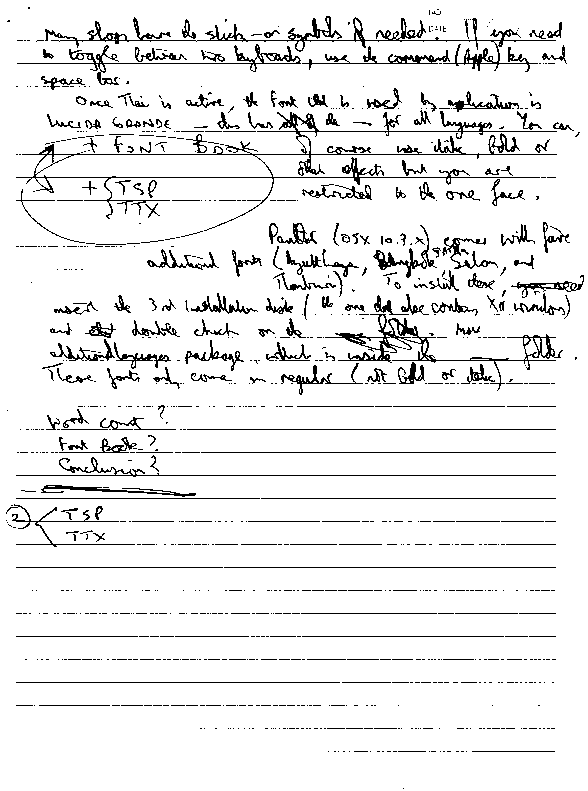 NO
DATE
Many shops have the stick-on symbols if needed. If you need
to toggle between two keyboards, use the command (Apple) key and
space bar.
Once Thai is active, the font that is used by application is
LUCIDA GRANDE — this has all of the — for all languages. You can,
+ FONT BOOK of course use italic, bold or
other effects but you are
+ { TSP restricted to the one face.
TTX
Panther (OSX 10.3.x) comes with five
additional fonts (Ayutthaya, Silom, and
). To install these, you need
insert the 3rd installation disk (the one that also contains X11 windows)
and double click on the folder. more
additional languages package which is inside the ___ folder.
These fonts only come in regular (not bold or italic).
Word count?
Font Book?
Conclusion?
2 < TSP
TTX